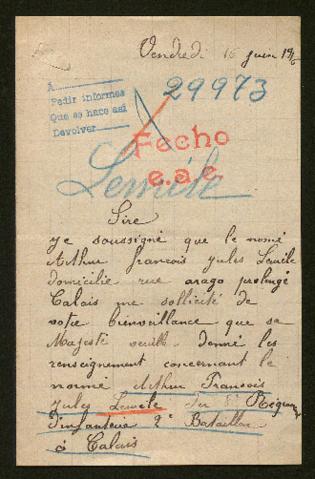 Vendredi 16 juin 1916
A
Pedir informes
Que se hace así
Devolver
29973
Fecho
e.a.c.
Lewéle
Sire
Je soussigné que le nomé
Arthur francois Jules Lewéle
domicilié rue arago prolongé
Calais me sollicité de
votre bienveillance que sa
Majesté veuille donné les
renseignement concernant le
nommé Arthur Francois
Jules Lewéle du 8e Régiment
d'infanterie 2e Bataillon
à Calais